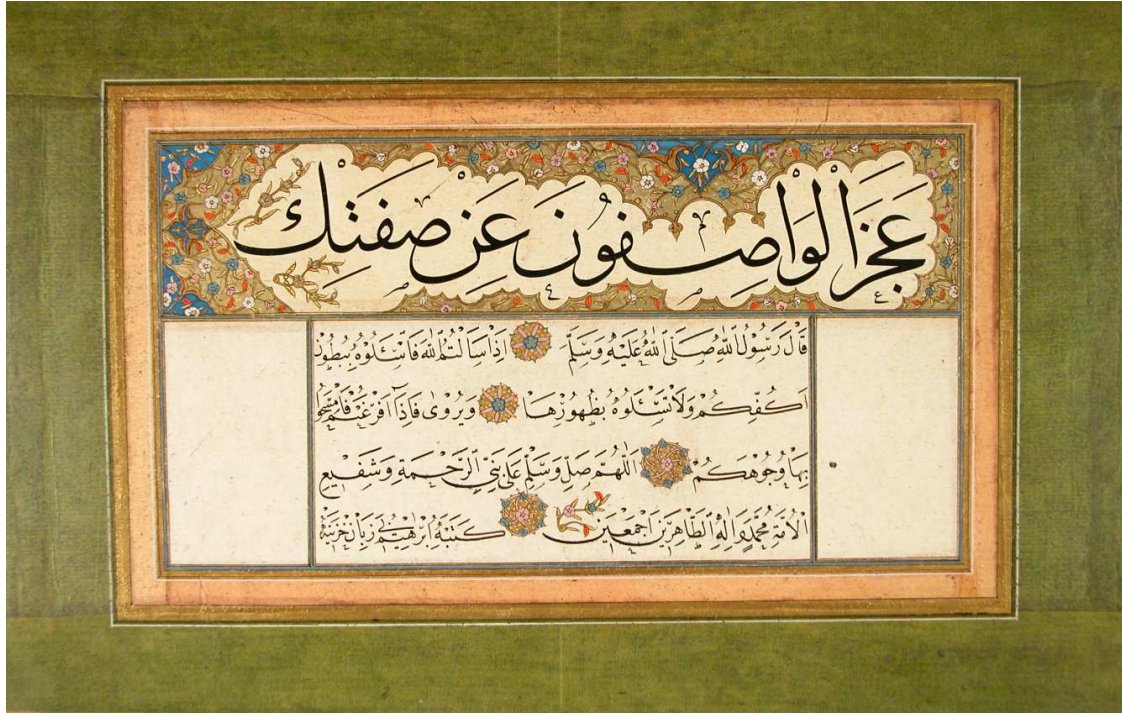 عَجَزَ الْوَاصِفُونَ عَنْ صِفَتِكَ
قَالَ رَسُولُ اللّٰهِ صَلَّى اللّٰهُ عَلَيْهِ وَسَلَّمَ اِذَا سَاَلْتُمُ اللّٰهَ فَاسْئَلُوهُ بِبُطُونِ
اَكُفِّكُمْ وَلَا تَسْئَلُوهُ بِظُهُورِهَا وَيُرْوٰى فَاِذَا اَفْرَغْتُمْ فَامْسَحُوا
بِهَا وُجُوهَكُمْ اَللّٰهُمَّ صَلِّ وَسَلِّمْ عَلٰى نَبِيِّ الرَّحْمَةِ وَشَفِيعِ
الْاُمَّةِ مُحَمَّدٍ وَاٰلِهِ الطَّاهِرِينَ اَجْمَعِينَ كَتَبَهُ اِبْرٰهِيمُ